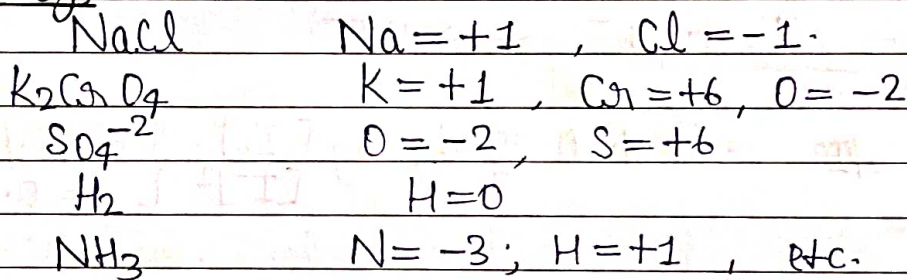 NaCl Na = +1 , Cl = -1.
K2CrO4 K = +1 , Cr = +6, O = -2
SO4^-2 O = -2 , S = +6
H2 H = 0
NH3 N = -3; H = +1 , etc.